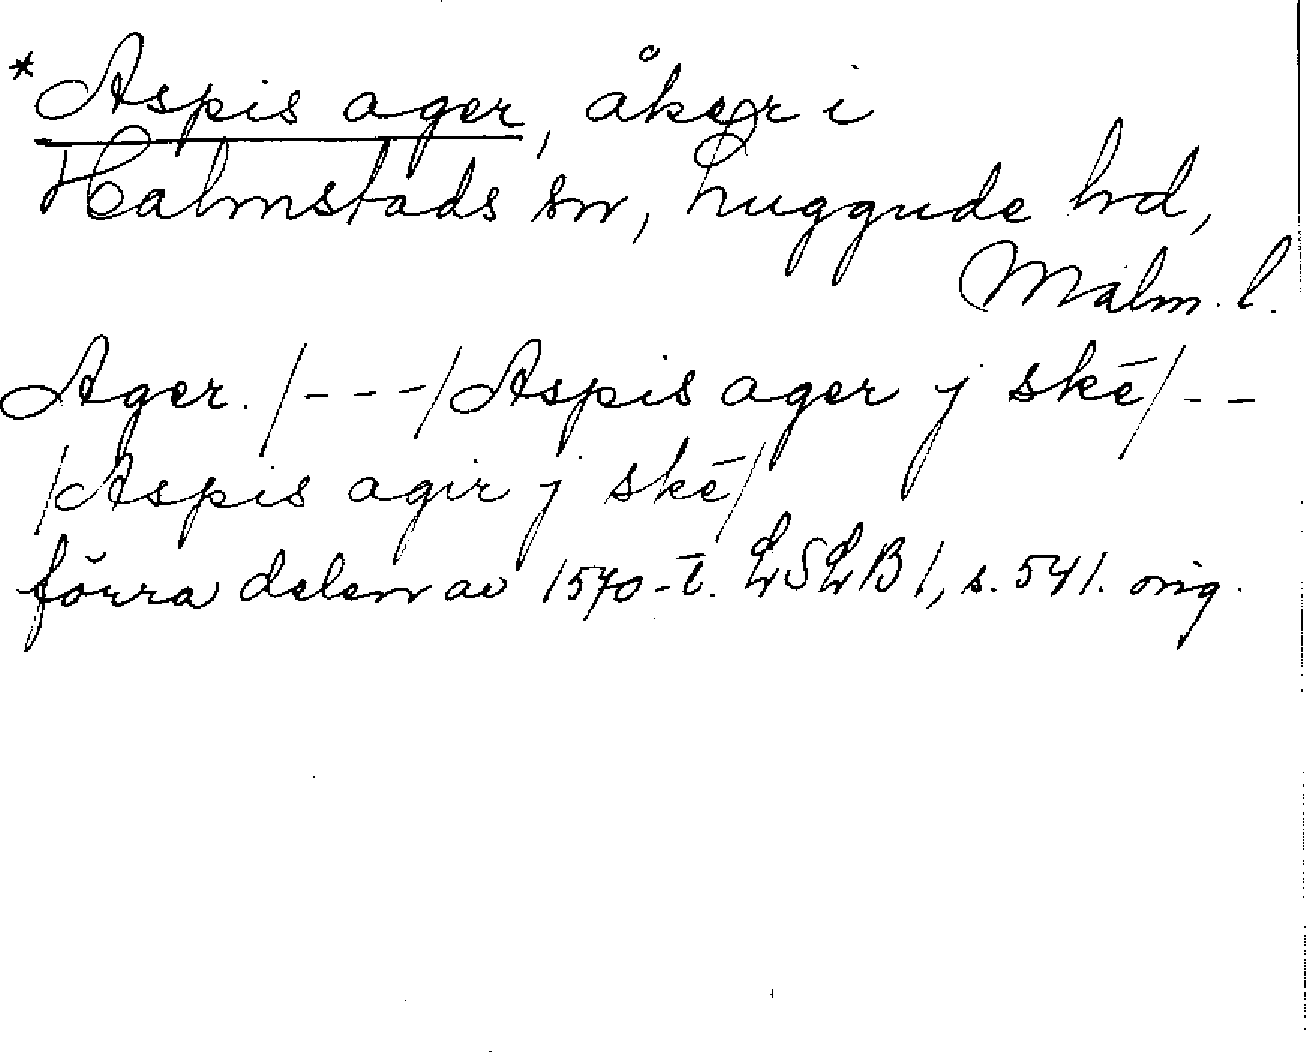 *Aspis ager, åker i
Halmstads sn, Luggude hd,
Malm. l.
Ager. /---/ Aspis ager j skē /--
/Aspis agir j skē/
förra delen av 1570-t. LSLB 1, s. 541. orig.